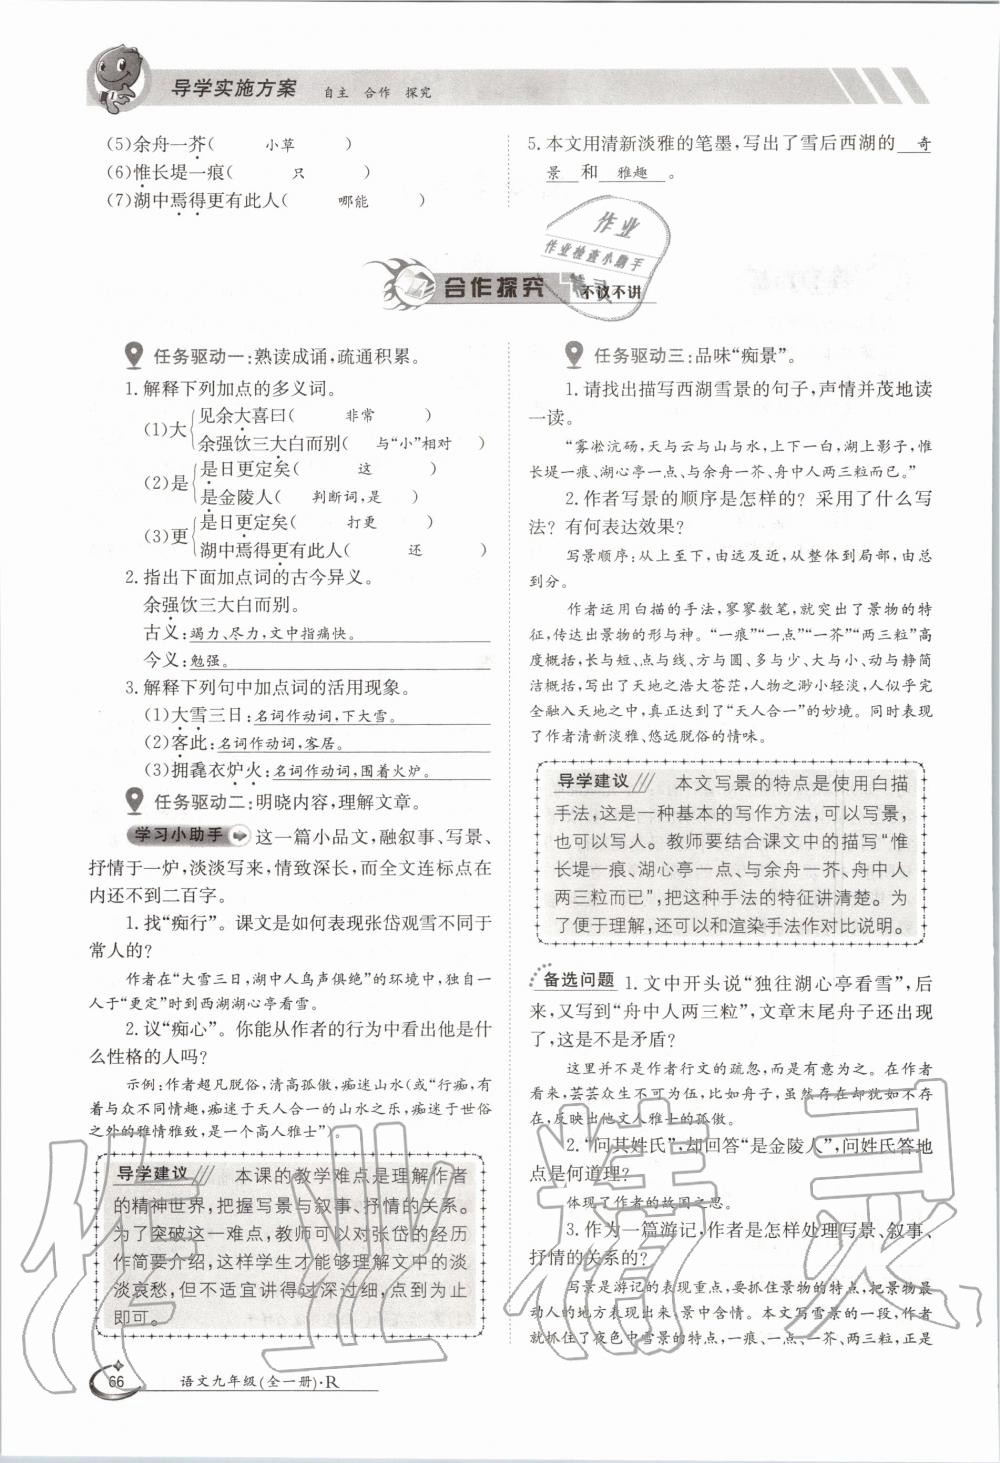 导学实施方案 自主 合作 探究
(5)余舟一芥( 小草 )
(6)惟长堤一痕( 只 )
(7)湖中焉得更有此人( 哪能 )
5.本文用清新淡雅的笔墨，写出了雪后西湖的 奇
景 和 雅趣 。
作业
作业检查小助手
合作探究 不议不讲
任务驱动一:熟读成诵，疏通积累。
1.解释下列加点的多义词。
(1)大
见余大喜曰( 非常 )
余强饮三大白而别( 与“小”相对 )
(2)是
是日更定矣( 这 )
是金陵人( 判断词，是 )
(3)更
是日更定矣( 打更 )
湖中焉得更有此人( 还 )
2.指出下面加点词的古今异义。
余强饮三大白而别。
古义:竭力、尽力，文中指痛快。
今义:勉强。
3.解释下列句中加点词的活用现象。
(1)大雪三日:名词作动词，下大雪。
(2)客此:名词作动词，客居。
(3)拥毳衣炉火:名词作动词，围着火炉。
任务驱动二:明晓内容，理解文章。
学习小助手 这一篇小品文，融叙事、写景、
抒情于一炉，淡淡写来，情致深长，而全文连标点在
内还不到二百字。
1.找“痴行”。课文是如何表现张岱观雪不同于
常人的?
作者在“大雪三日，湖中人鸟声俱绝”的环境中，独自一
人于“更定”时到西湖湖心亭看雪。
2.议“痴心”。你能从作者的行为中看出他是什
么性格的人吗?
示例:作者超凡脱俗，清高孤傲，痴迷山水(或“行痴，有
着与众不同情趣，痴迷于天人合一的山水之乐，痴迷于世俗
之外的雅情雅致，是一个高人雅士”)。
导学建议 本课的教学难点是理解作者
的精神世界，把握写景与叙事、抒情的关系。
为了突破这一难点，教师可以对张岱的经历
作简要介绍，这样学生才能够理解文中的淡
淡哀愁，但不适宜讲得过深过细，点到为止
即可。
任务驱动三:品味“痴景”。
1.请找出描写西湖雪景的句子，声情并茂地读
一读。
“雾凇沆砀，天与云与山与水，上下一白，湖上影子，惟
长堤一痕、湖心亭一点、与余舟一芥、舟中人两三粒而已。”
2.作者写景的顺序是怎样的? 采用了什么写
法? 有何表达效果?
写景顺序:从上至下，由远及近，从整体到局部，由总
到分。
作者运用白描的手法，寥寥数笔，就突出了景物的特
征，传达出景物的形与神。“一痕”“一点”“一芥”“两三粒”高
度概括，长与短、点与线、方与圆、多与少、大与小、动与静简
洁概括，写出了天地之浩大苍茫，人物之渺小轻淡，人似乎完
全融入天地之中，真正达到了“天人合一”的妙境。同时表现
了作者清新淡雅、悠远脱俗的情味。
导学建议 本文写景的特点是使用白描
手法，这是一种基本的写作方法，可以写景，
也可以写人。教师要结合课文中的描写“惟
长堤一痕、湖心亭一点、与余舟一芥、舟中人
两三粒而已”，把这种手法的特征讲清楚。为
了便于理解，还可以和渲染手法作对比说明。
备选问题 1.文中开头说“独往湖心亭看雪”，后
来，又写到“舟中人两三粒”，文章末尾舟子还出现
了，这是不是矛盾?
这里并不是作者行文的疏忽，而是有意为之。在作者
看来，芸芸众生不可为伍，比如舟子，虽然存在却犹如不存
在，反映出他文人雅士的孤傲。
2.“问其姓氏”，却回答“是金陵人”，问姓氏答地
点是何道理?
体现了作者的故国之思。
3.作为一篇游记，作者是怎样处理写景、叙事、
抒情的关系的?
写景是游记的表现重点，要抓住景物的特点，把景物最
动人的地方表现出来，景中含情。本文写雪景的一段，作者
就抓住了夜色中雪景的特点，一痕、一点、一芥、两三粒，正是
作业精灵
66 语文九年级(全一册)·R